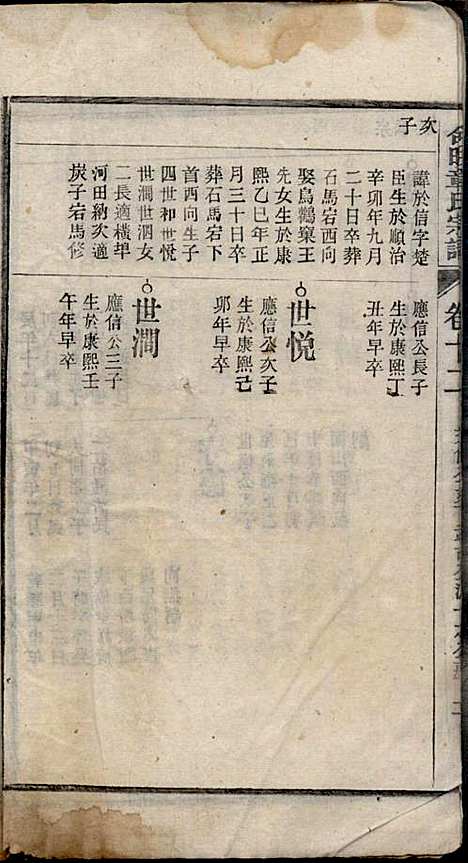 次子
諱於信字楚
臣生於順治
辛卯年九月
二十日卒葬
石馬宕西向
娶鳥鶴窠王
先女生於康
熙乙巳年正
月三十日卒
葬石馬宕下
首西向生子
四世和世悅
世澗世泗女
二長適橫埠
河田納次適
炭子宕馬修
應信公長子
生於康熙丁
丑年早卒
世悅
應信公次子
生於康熙己
卯年早卒
世澗
應信公三子
生於康熙壬
午年早卒
章氏宗譜
卷十二